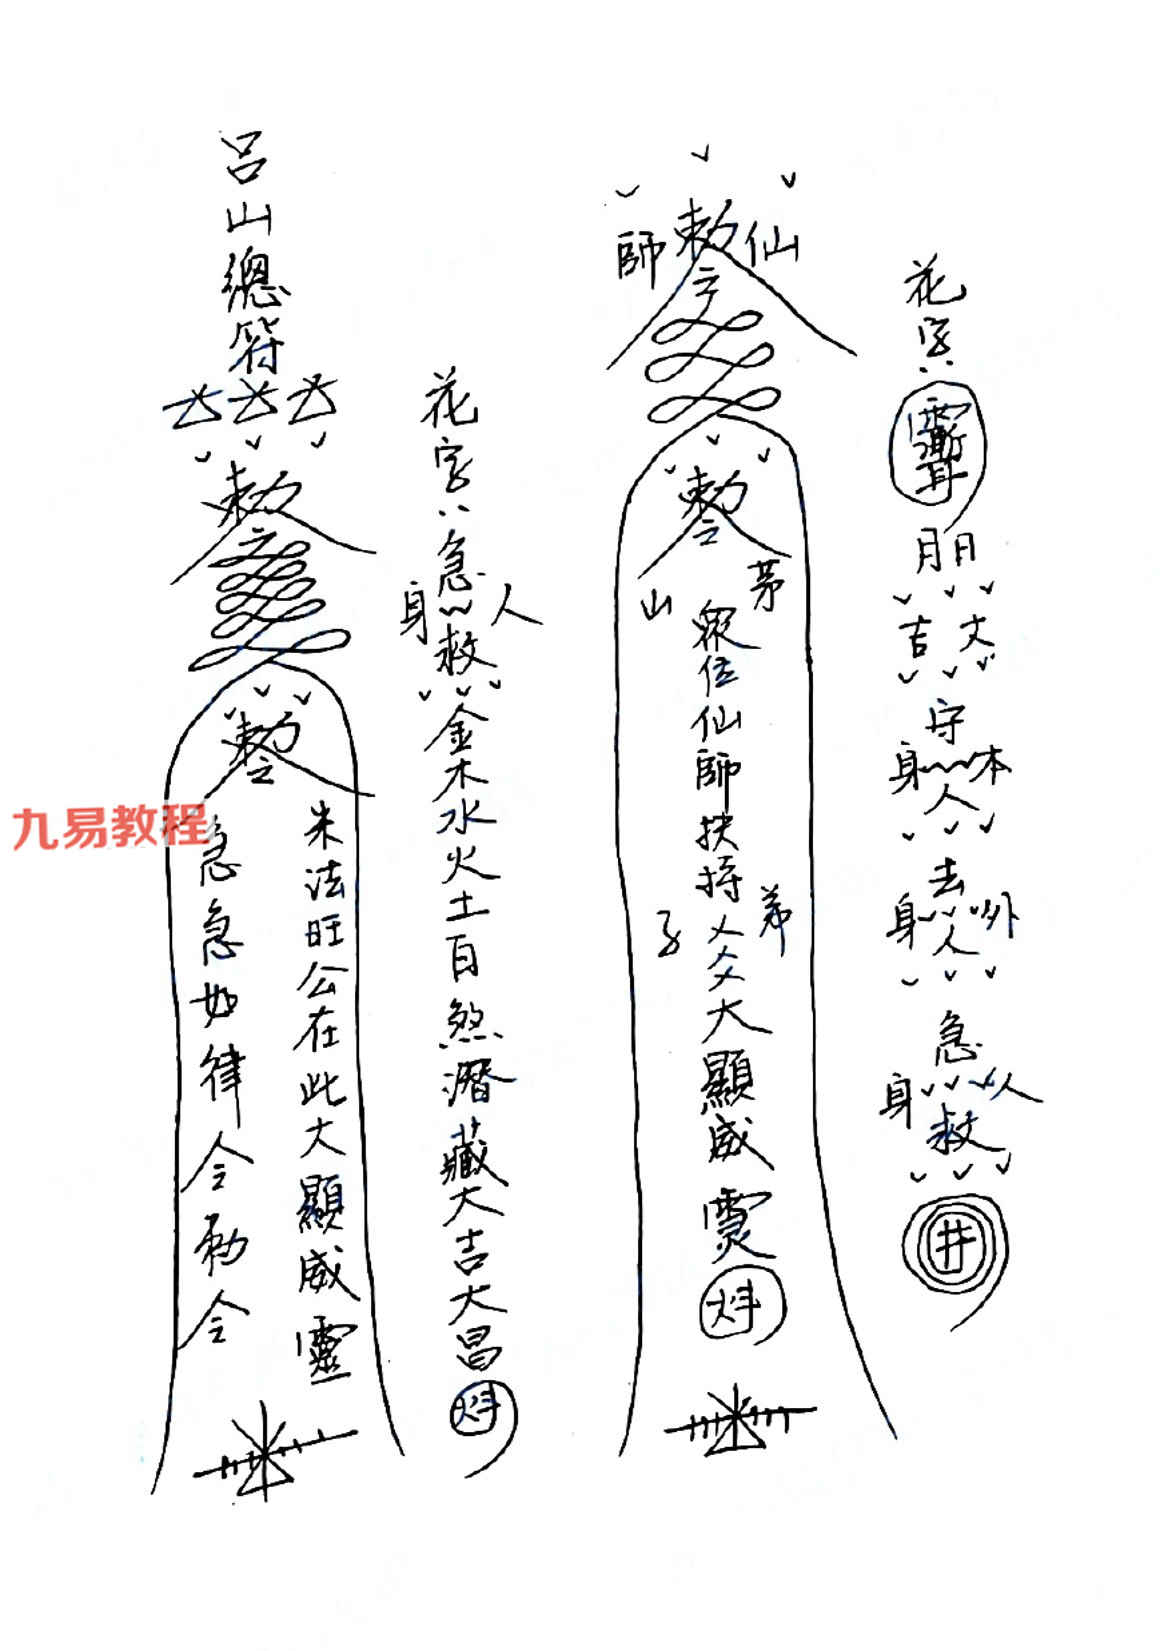 呂山總符
勅令
勅令
朱法旺公在此大顯威靈
急急如律令勅令
花字:急救
人身
金木水火土百煞潛藏大吉大昌
仙師
勅令
勅令
茅山
眾位仙師扶持
弟子
大顯威靈
井
花字:
月日
守
本人身
去
外人身
急救
人身
井
九易教程